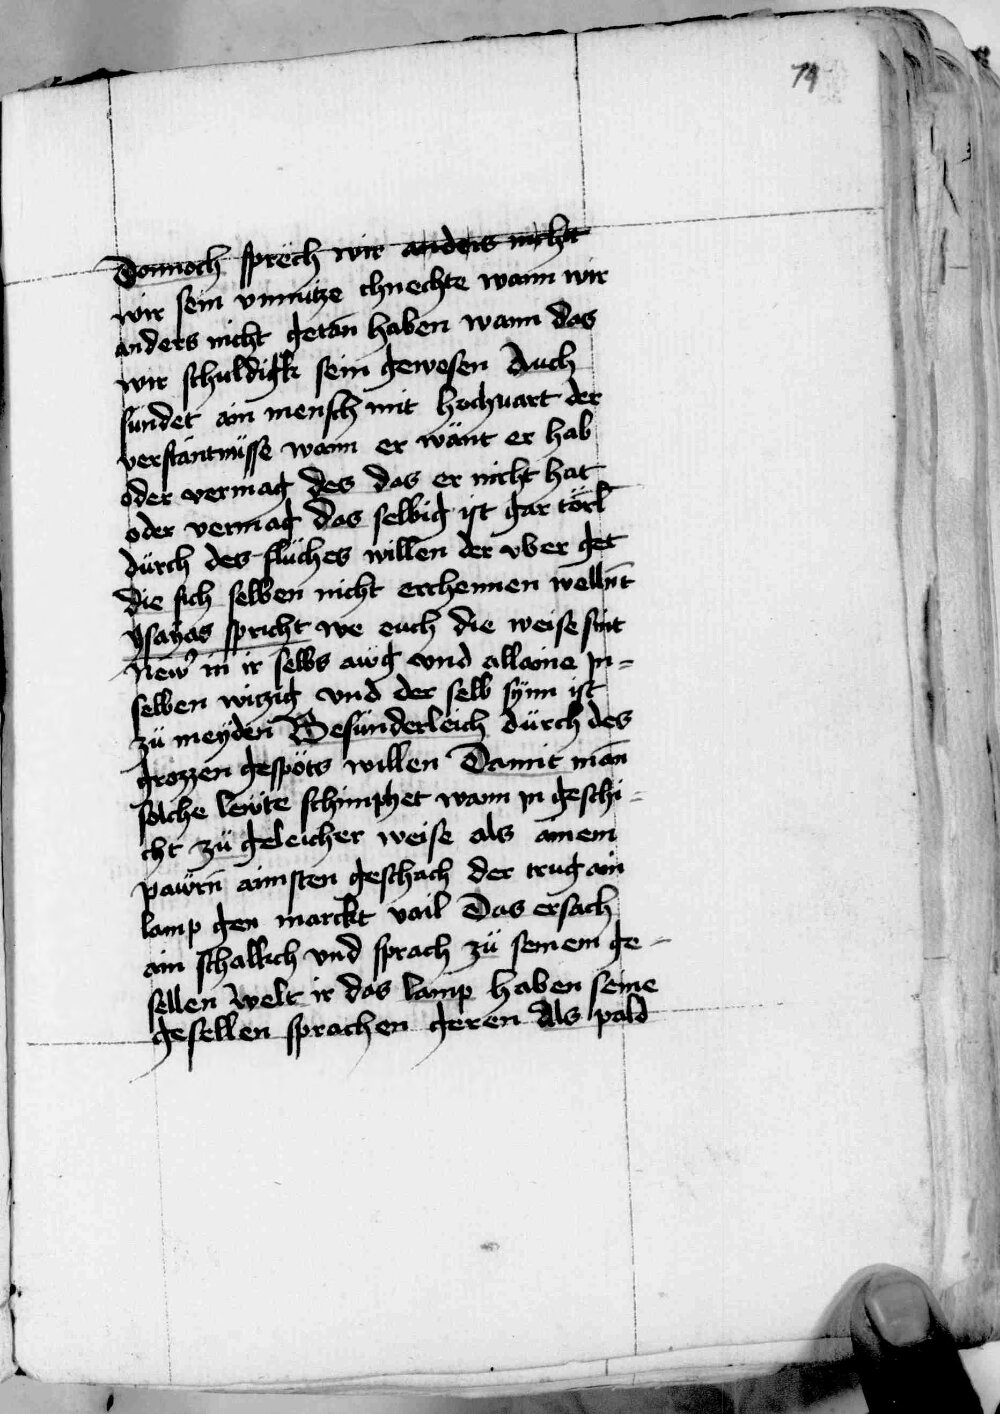 74
Dennoch sprech wir anders nicht
wir sein vnnutze chnechte wann wir
anders nicht getan haben wann das
wir schuldigk sein gewesen Auch
sundet ain mensch mit hochuart der
verstantnüsse wann er wänt er hab
oder vermag des das er nicht hat
oder vermag das selbig ist gar törl
dürch des flüches willen der vber get
die sich selben nicht erchennen wellnt
ysayas spricht we euch die weise sint
new in ir selbs awg vnd allaine in=
selben witzig vnd der selb synn ist
zü meyden Besünderleich dürch des
grozzen gespöts willen Damit man
solche lewte schimphet wann in geschi=
cht zü geleicher weise als ainem
pawrn ainsten geschach der trug ain
lamp gen marckt vail Das ersach
ain schalkch vnd sprach zü seinem ge-
sellen welt ir das lamp haben seine
gesellen sprachen geren Als pald